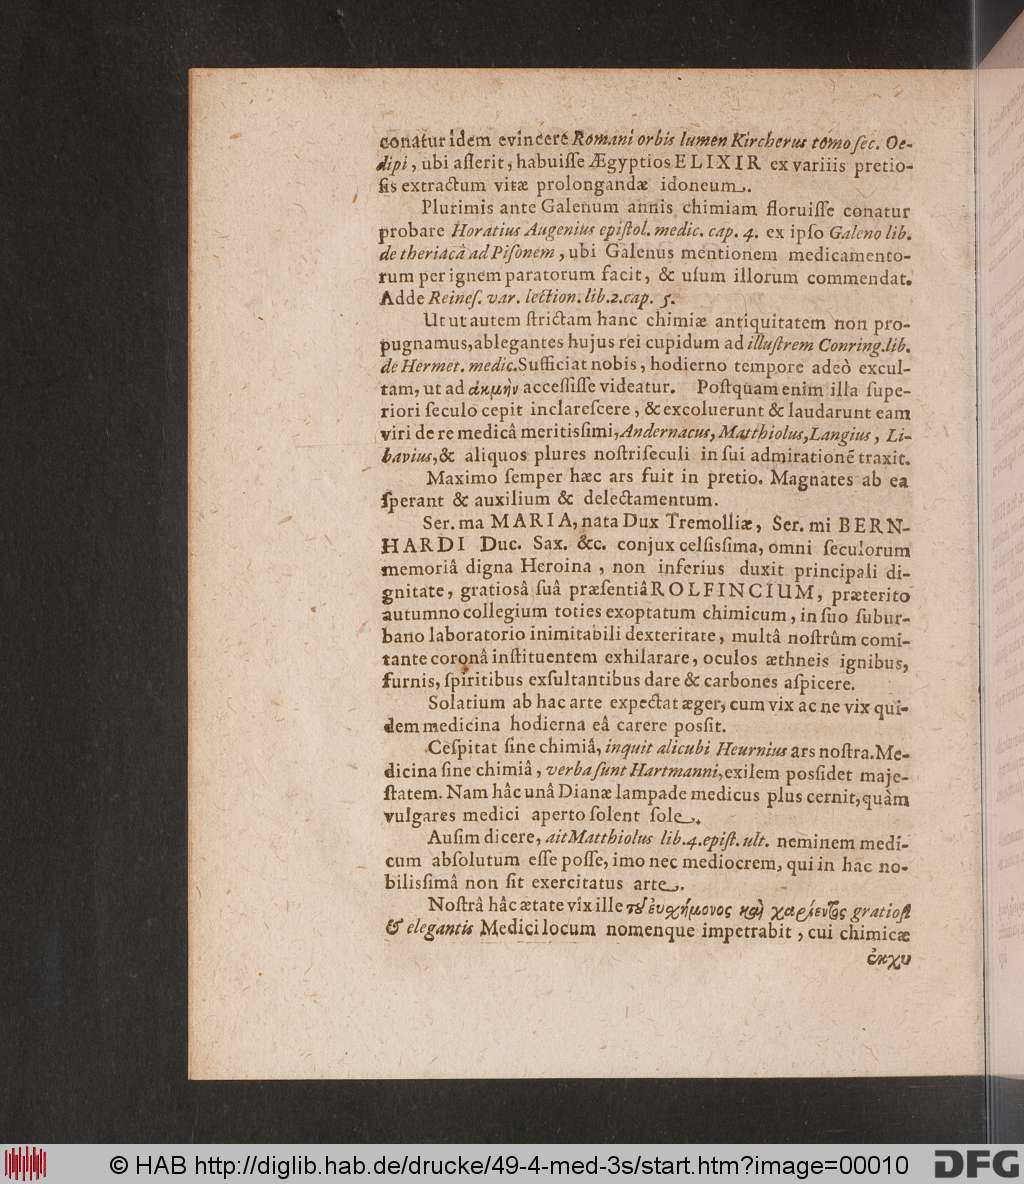 conatur idem evincere Romani orbis lumen Kircherus tomo ſec. Oe-
dipi, ubi aſſerit, habuiſſe Ægyptios ELIXIR ex variiis pretio-
ſis extractum vitæ prolongandæ idoneum.
Plurimis ante Galenum annis chimiam floruiſſe conatur
probare Horatius Augenius epiſtol. medic. cap. 4. ex ipſo Galeno lib.
de theriacâ ad Piſonem, ubi Galenus mentionem medicamento-
rum per ignem paratorum facit, & uſum illorum commendat.
Adde Reineſ. var. lection. lib. 2. cap. 5.
Ut ut autem ſtrictam hanc chimiæ antiquitatem non pro-
pugnamus, ablegantes hujus rei cupidum ad illuſtrem Conring. lib.
de Hermet. medic. Sufficiat nobis, hodierno tempore adeò excul-
tam, ut ad ἀκμὴν acceſſiſſe videatur. Poſtquam enim illa ſupe-
riori ſeculo cepit inclareſcere, & excoluerunt & laudarunt eam
viri de re medicâ meritisſimi, Andernacus, Matthiolus, Langius, Li-
bavius, & aliquos plures noſtri ſeculi in ſui admirationē traxit.
Maximo ſemper hæc ars fuit in pretio. Magnates ab ea
ſperant & auxilium & delectamentum.
Ser. ma MARIA, nata Dux Tremolliæ, Ser. mi BERN-
HARDI Duc. Sax. &c. conjux celſisſima, omni ſeculorum
memoriâ digna Heroina, non inferius duxit principali di-
gnitate, gratiosâ ſuâ præſentiâ ROLFINCIUM, præterito
autumno collegium toties exoptatum chimicum, in ſuo ſubur-
bano laboratorio inimitabili dexteritate, multâ noſtrûm comi-
tante coronâ inſtituentem exhilarare, oculos æthneis ignibus,
furnis, ſpiritibus exſultantibus dare & carbones aſpicere.
Solatium ab hac arte expectat æger, cum vix ac ne vix qui-
dem medicina hodierna eâ carere posſit.
Ceſpitat ſine chimiâ, inquit alicubi Heurnius ars noſtra. Me-
dicina ſine chimiâ, verba ſunt Hartmanni, exilem posſidet maje-
ſtatem. Nam hâc unâ Dianæ lampade medicus plus cernit, quàm
vulgares medici aperto ſolent ſole.
Auſim dicere, ait Matthiolus lib. 4. epiſt. ult. neminem medi-
cum abſolutum eſſe poſſe, imo nec mediocrem, qui in hac no-
bilisſimâ non ſit exercitatus arte.
Noſtrâ hâc ætate vix ille τοῦ ἐυσχήμονος καὶ χαρίεντος gratioſi
& elegantis Medici locum nomenque impetrabit, cui chimicæ
ἐκχυ
© HAB http://diglib.hab.de/drucke/49-4-med-3s/start.htm?image=00010
DFG